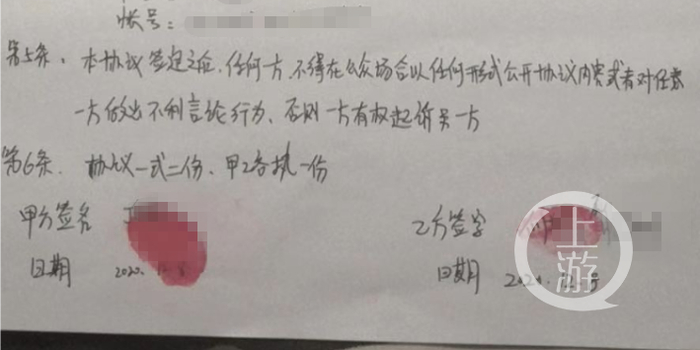 帐号:
第5条、本协议签定之后,任何一方,不得在公众场合以任何形式公开协议内容或者对任意
一方做出不利言论行为、否则一方有权起诉另一方
第6条、协议一式二份、甲乙各执一份
甲方签名 乙方签字
日期 2020. 日期 2020.
上游